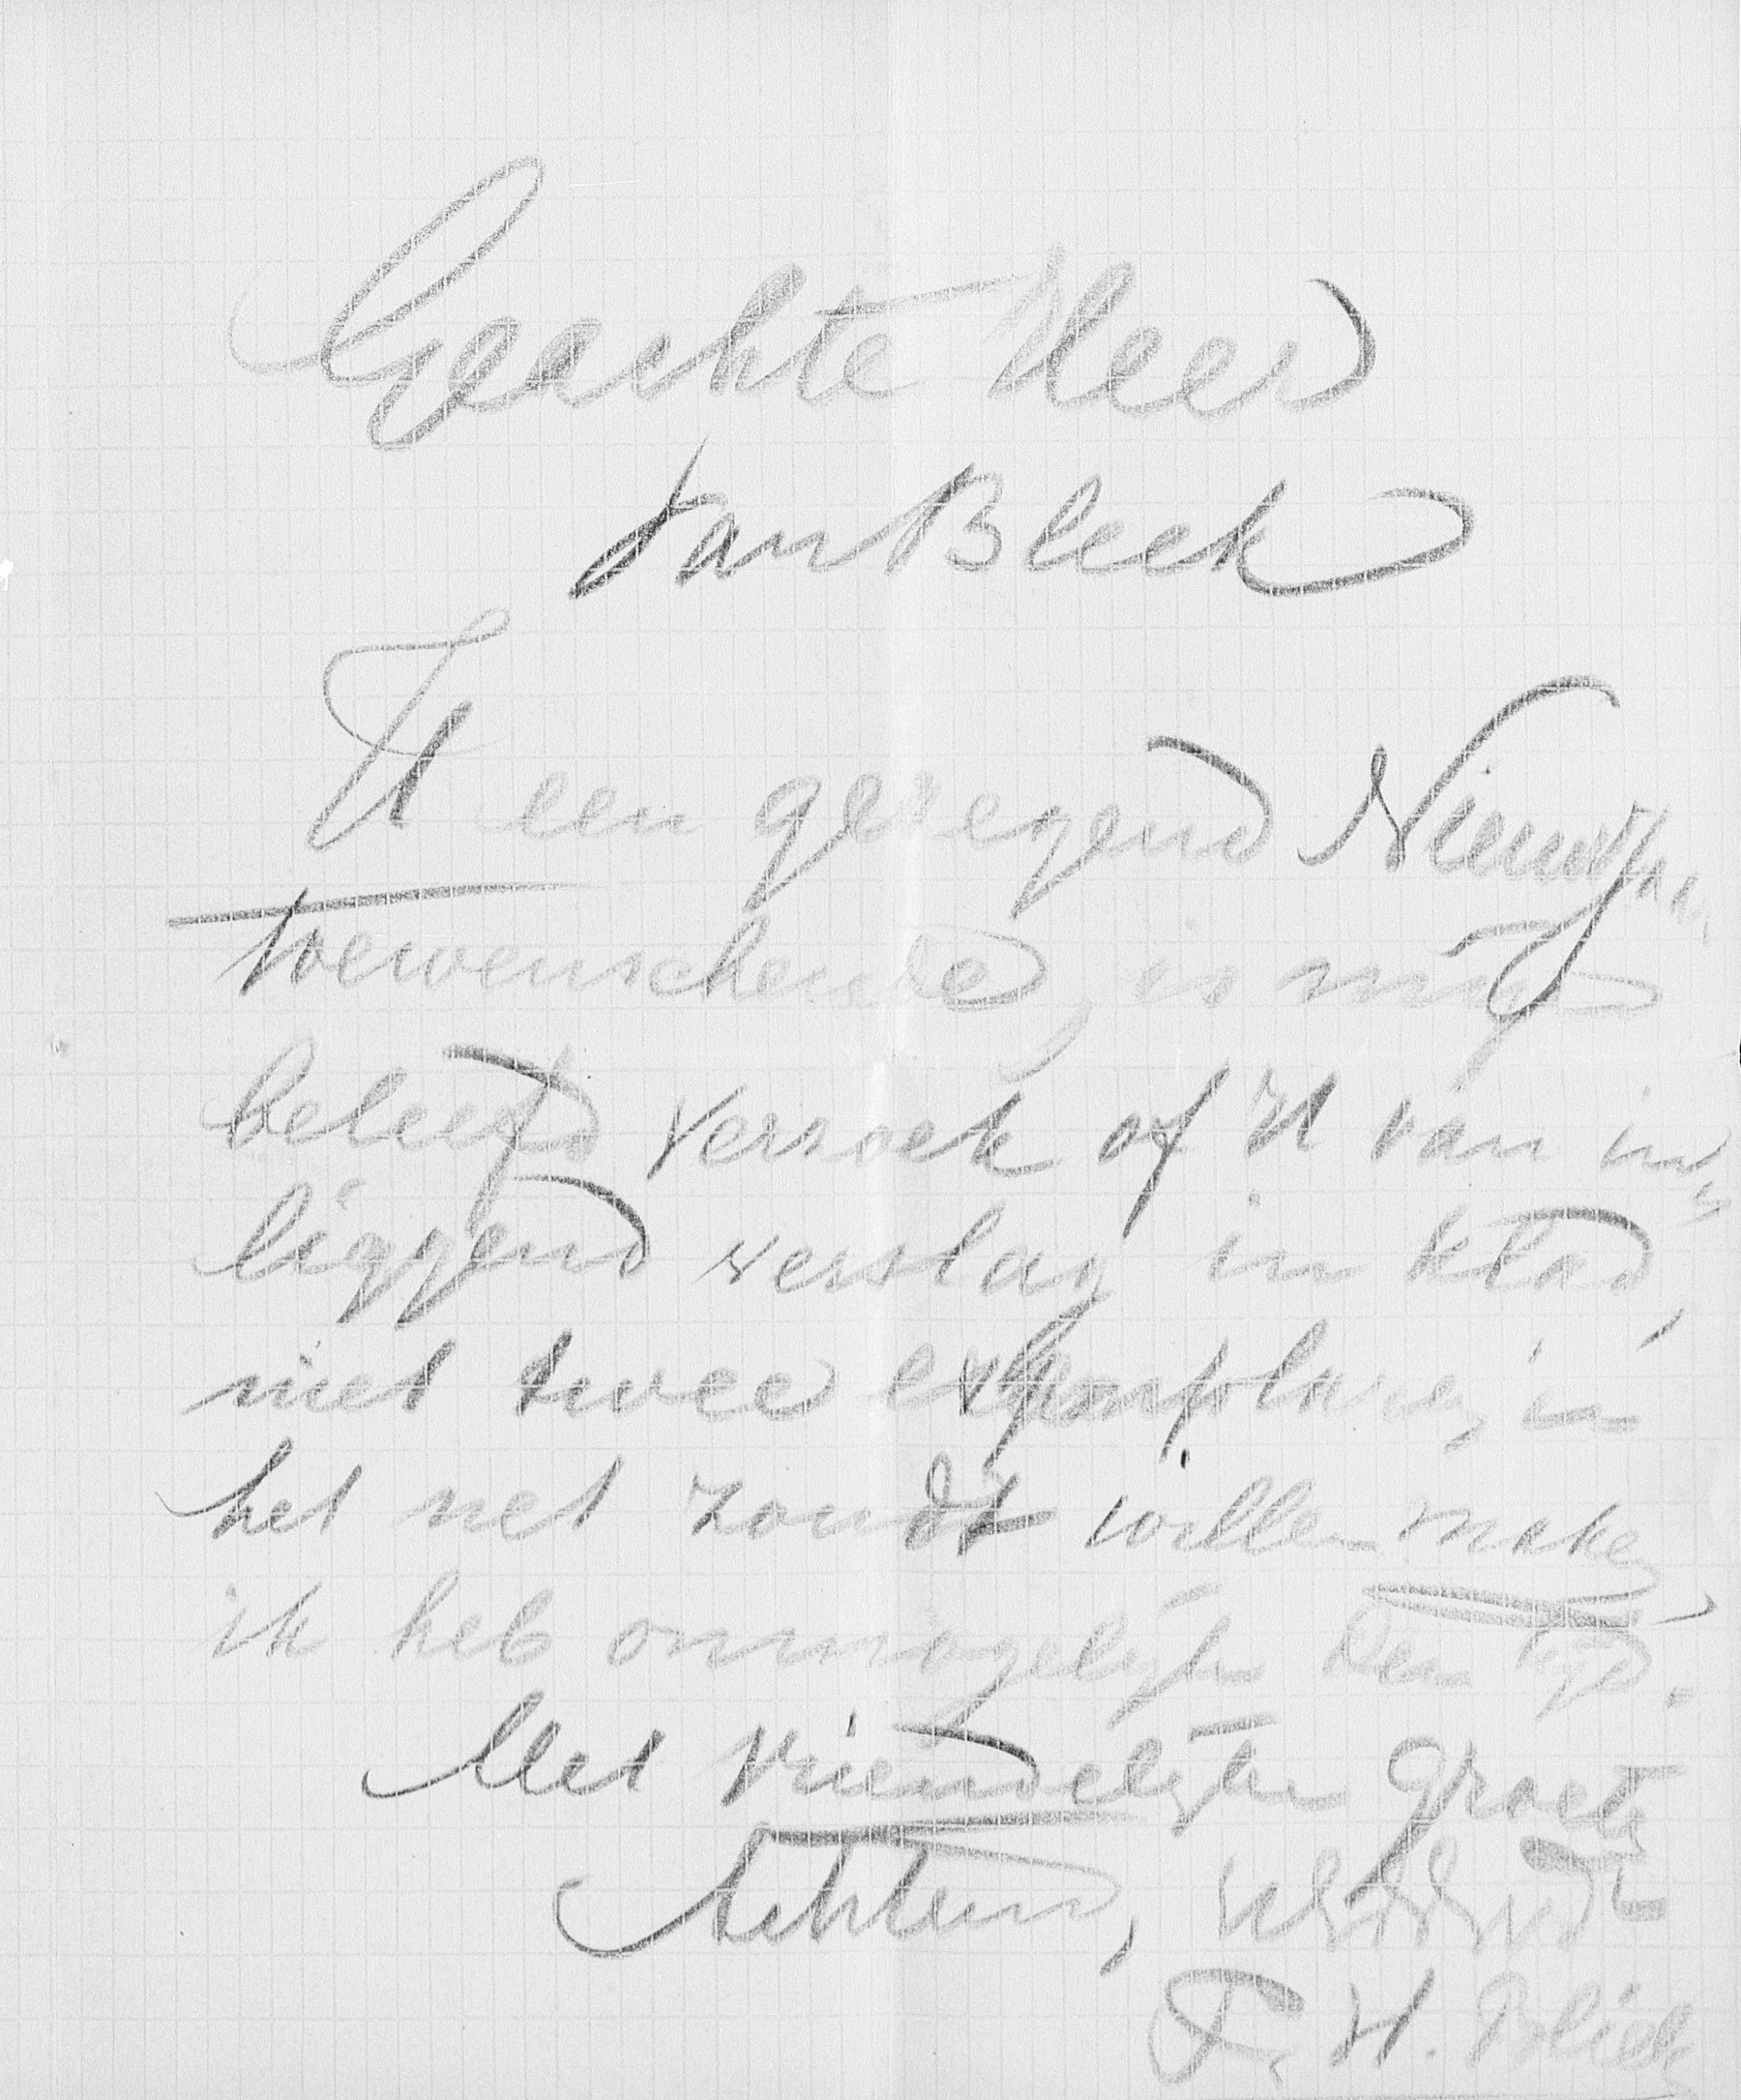 Geachte Heer
van Bleek
U een gezegend Nieuwjaar
toewenschende, is mijn
beleefd verzoek of U van in-
liggend verslag in klad,
niet twee exemplaren in
het net zoudt willen maken
ik heb onmogelijk den tijd.
Met vriendelijke groete
Achtend,
F. H. Bliek